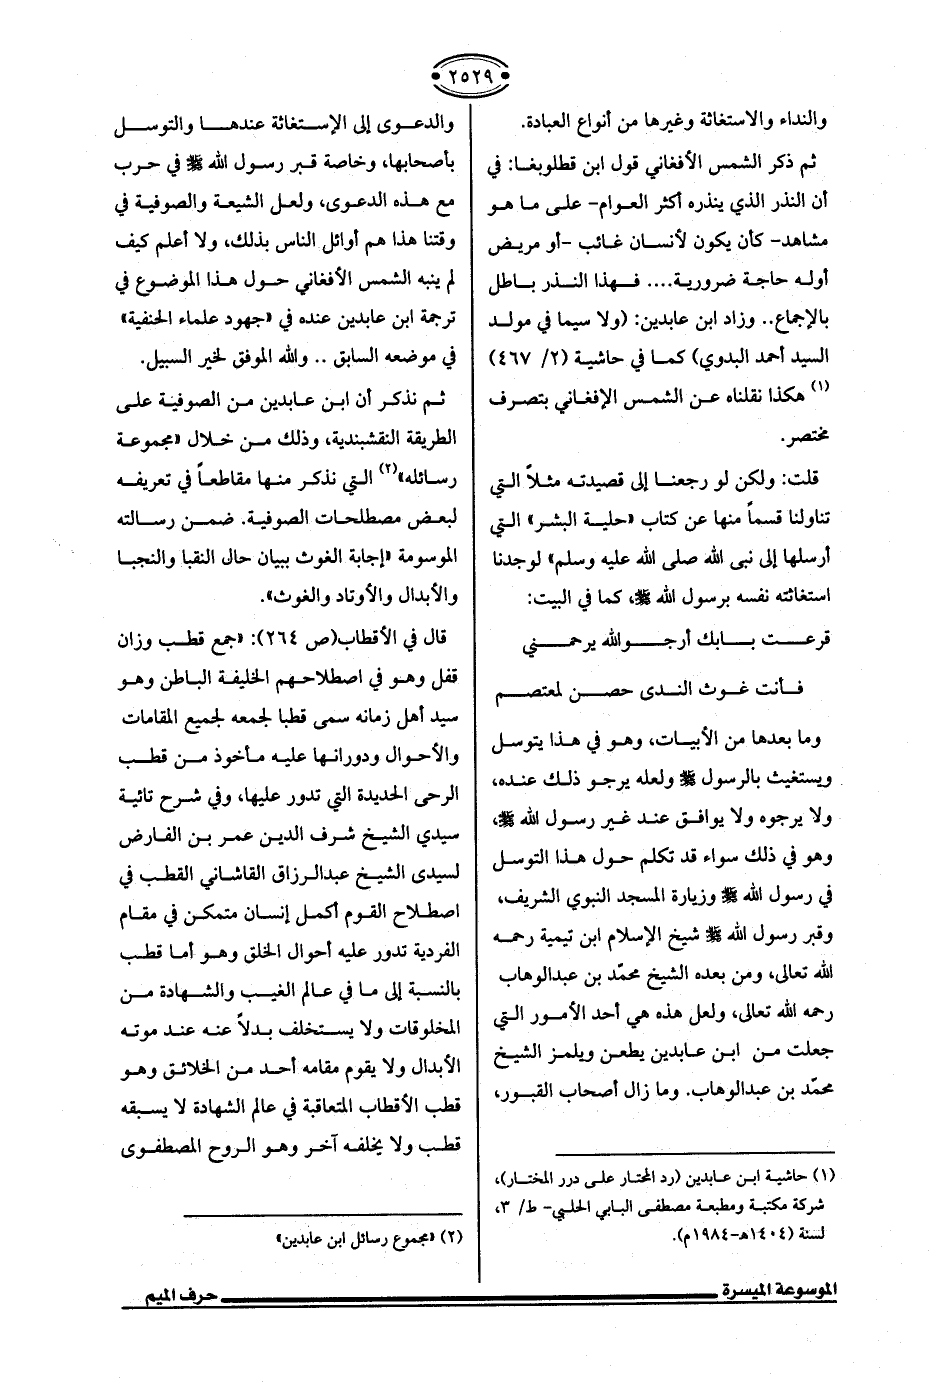 ٢٥٢٩
والنداء والاستغاثة وغيرها من أنواع العبادة.
ثم ذكر الشمس الأفغاني قول ابن قطلوبغا: في
أن النذر الذي ينذره أكثر العوام- على ما هو
مشاهد- كأن يكون لأنسان غائب -أو مريض
أوله حاجة ضرورية.... فهذا النذر باطل
بالإجماع.. وزاد ابن عابدين: (ولا سيما في مولد
السيد أحمد البدوي) كما في حاشية (٢/ ٤٦٧)
(١) هكذا نقلناه عن الشمس الإفغاني بتصرف
مختصر.
قلت: ولكن لو رجعنا إلى قصيدته مثلاً التي
تناولنا قسماً منها عن كتاب «حلية البشر» التي
أرسلها إلى نبي الله صلى الله عليه وسلم» لوجدنا
استغاثته نفسه برسول الله ﷺ، كما في البيت:
قرعت ببابك أرجو الله يرحمني
فأنت غوث الندى حصن لمعتصم
وما بعدها من الأبيات، وهو في هذا يتوسل
ويستغيث بالرسول ﷺ ولعله يرجو ذلك عنده،
ولا يرجوه ولا يوافق عند غير رسول الله ﷺ،
وهو في ذلك سواء قد تكلم حول هذا التوسل
في رسول الله ﷺ وزيارة المسجد النبوي الشريف،
وقبر رسول الله ﷺ شيخ الإسلام ابن تيمية رحمه
الله تعالى، ومن بعده الشيخ محمّد بن عبدالوهاب
رحمه الله تعالى، ولعل هذه هي أحد الأمور التي
جعلت من ابن عابدين يطعن ويلمز الشيخ
محمّد بن عبدالوهاب. وما زال أصحاب القبور،
(١) حاشية ابن عابدين (رد المختار على درر المختار)،
شركة مكتبة ومطبعة مصطفى البابي الحلبي- ط/ ٣،
لسنة (١٤٠٤هـ-١٩٨٤م).
والدعوى إلى الإستغاثة عندها والتوسل
بأصحابها، وخاصة قبر رسول الله ﷺ في حرب
مع هذه الدعوى، ولعل الشيعة والصوفية في
وقتنا هذا هم أوائل الناس بذلك، ولا أعلم كيف
لم ينبه الشمس الأفغاني حول هذا الموضوع في
ترجمة ابن عابدين عنده في «جهود علماء الحنفية»
في موضعه السابق .. والله الموفق لخير السبيل.
ثم نذكر أن ابن عابدين من الصوفية على
الطريقة النقشبندية، وذلك من خلال «مجموعة
رسائله»(٢) التي نذكر منها مقاطعاً في تعريفه
لبعض مصطلحات الصوفية. ضمن رسالته
الموسومة «إجابة الغوث ببيان حال النقبا والنجبا
والأبدال والأوتاد والغوث».
قال في الأقطاب(ص ٢٦٤): «جمع قطب وزان
قفل وهو في اصطلاحهم الخليفة الباطن وهو
سيد أهل زمانه سمى قطبا لجمعه لجميع المقامات
والأحوال ودورانها عليه مأخوذ من قطب
الرحى الحديدة التي تدور عليها، وفي شرح تائية
سيدي الشيخ شرف الدين عمر بن الفارض
لسيدى الشيخ عبدالرزاق القاشاني القطب في
اصطلاح القوم أكمل إنسان متمكن في مقام
الفردية تدور عليه أحوال الخلق وهو أما قطب
بالنسبة إلى ما في عالم الغيب والشهادة من
المخلوقات ولا يستخلف بدلاً عنه عند موته
الأبدال ولا يقوم مقامه أحد من الخلائق وهو
قطب الأقطاب المتعاقبة في عالم الشهادة لا يسبقه
قطب ولا يخلفه آخر وهو الروح المصطفوى
(٢) «مجموع رسائل ابن عابدين»
الموسوعة الميسرة
حرف الميم